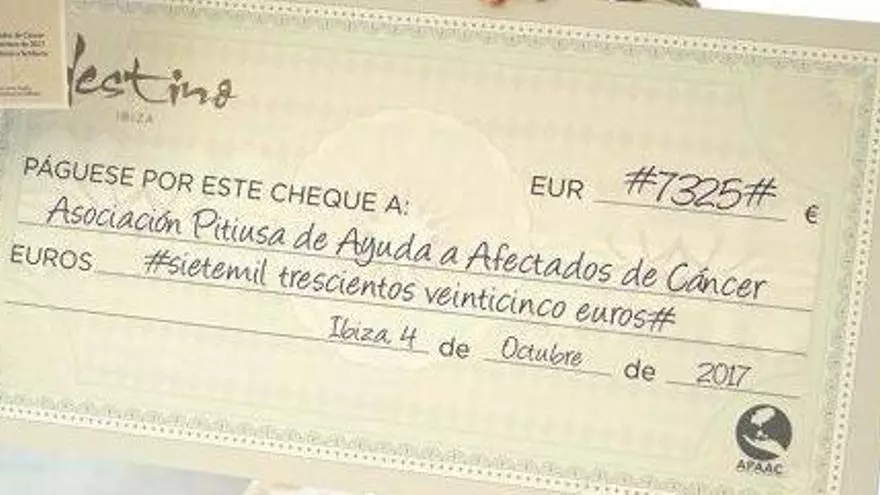 Destino
IBIZA
PÁGUESE POR ESTE CHEQUE A:
EUR #7325# €
Asociación Pitiusa de Ayuda a Afectados de Cáncer
EUROS #sietemil trescientos veinticinco euros#
Ibiza, 4 de Octubre de 2017
APAAC